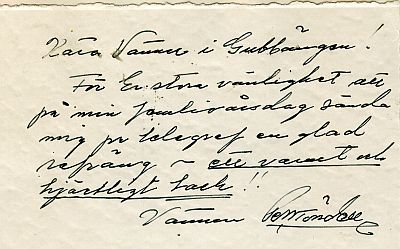 Kära Vänner i Gubbängen!
För Er stora vänlighet att
på min femtioårsdag sända
mig pr telegraf en glad
refräng ~ ett varmt och
hjärtligt tack!!
Vännen